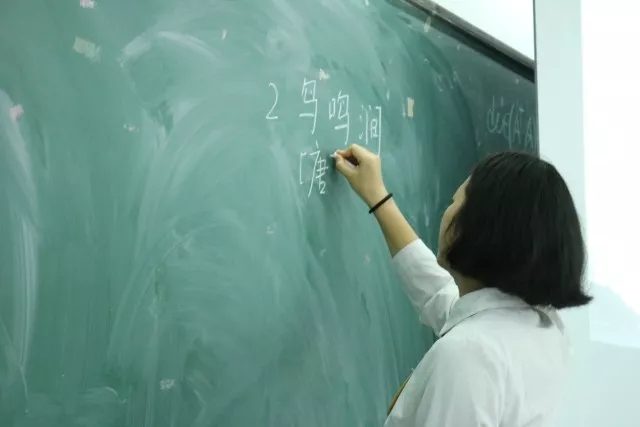 2 鸟鸣涧
[唐